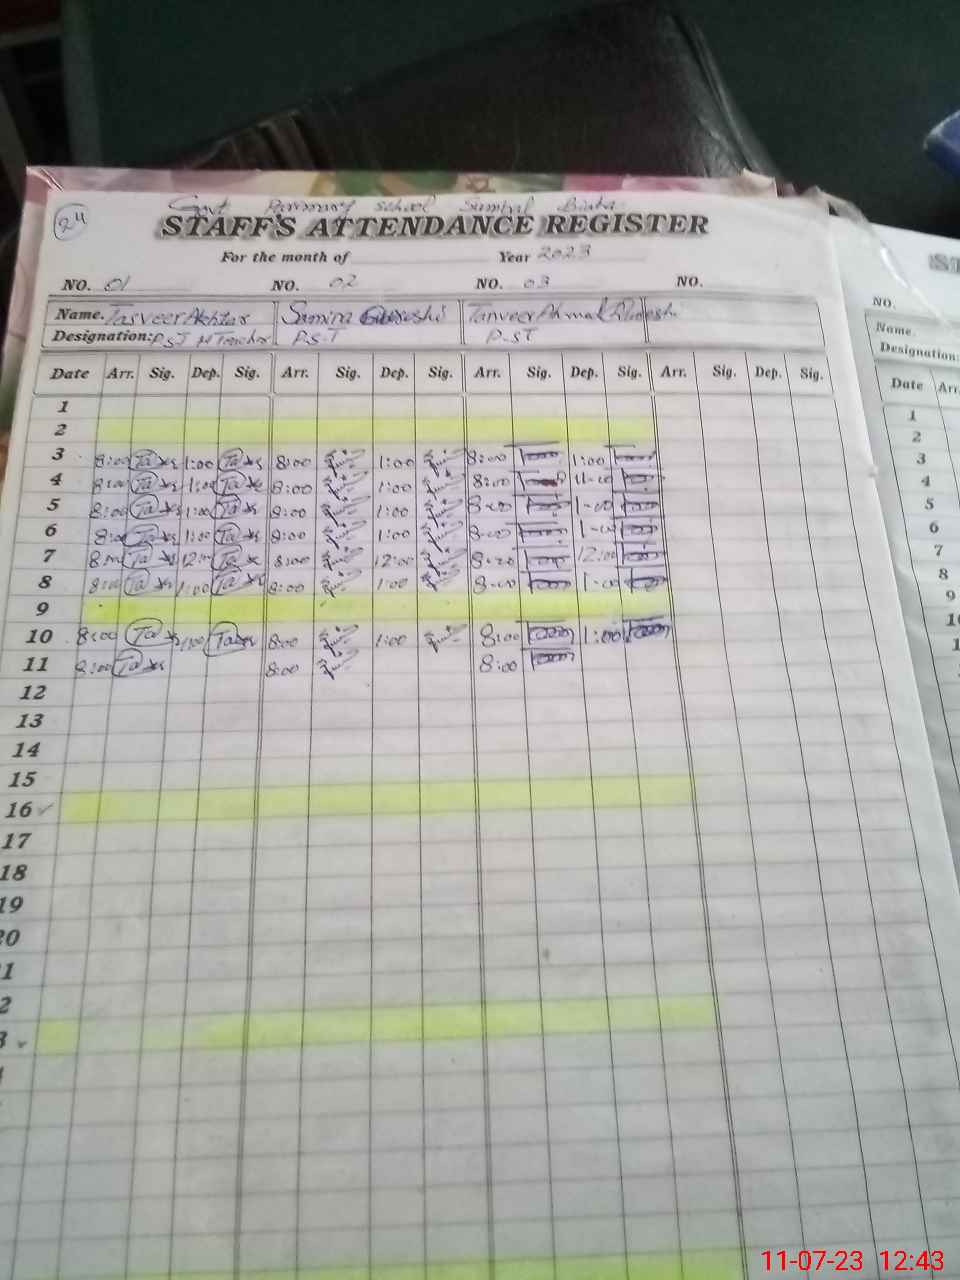 24
Govt Parimary School Sumbal Bisha
STAFF'S ATTENDANCE REGISTER
For the month of Year 2023
NO. 01 NO. 02 NO. 03 NO.
Name. Tasveer Akhtar Samina Tanveer Ahmad
Designation: PST H Teacher P.S.T P.ST
Date Arr. Sig. Dep. Sig. Arr. Sig. Dep. Sig. Arr. Sig. Dep. Sig. Arr. Sig. Dep. Sig.
1
2
3 8:00 1:00 8:00 1:00 8:00 1:00
4 8:00 1:00 8:00 1:00 8:00 1:00
5 8:00 1:00 8:00 1:00 8:00 1:00
6 8:00 1:00 8:00 1:00 8:00 1:00
7 8:00 12:00 8:00 12:00 8:00 12:00
8 8:00 1:00 8:00 1:00 8:00 1:00
9
10 8:00 1:00 8:00 1:00 8:00 1:00
11 8:00 8:00 8:00
12
13
14
15
16
17
18
19
20
1
2
3
NO.
Name.
Designation:
Date Arr.
1
2
3
4
5
6
7
8
9
11-07-23 12:43